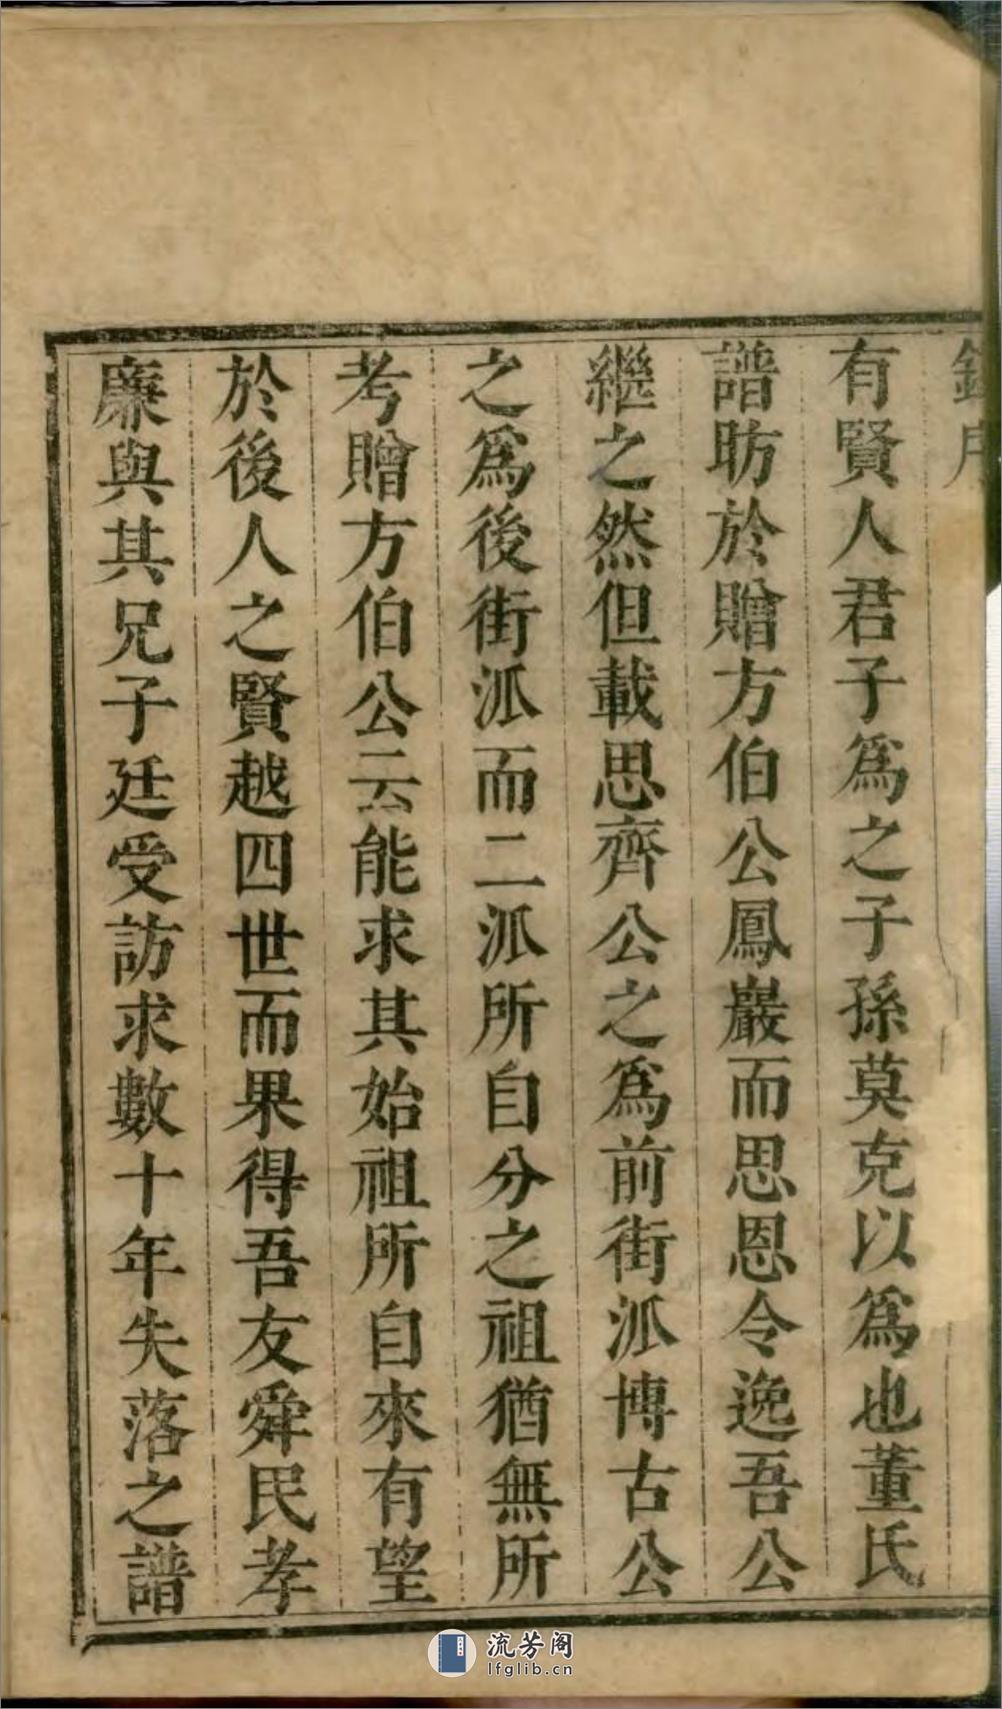 有賢人君子爲之子孫莫克以爲也董氏
譜昉於贈方伯公鳳巖而思恩令逸吾公
繼之然但載思齊公之爲前街派博古公
之爲後街派而二派所自分之祖猶無所
考贈方伯公云能求其始祖所自來有望
於後人之賢越四世而果得吾友舜民孝
廉與其兄子廷受訪求數十年失落之譜
流芳阁
lfglib.cn